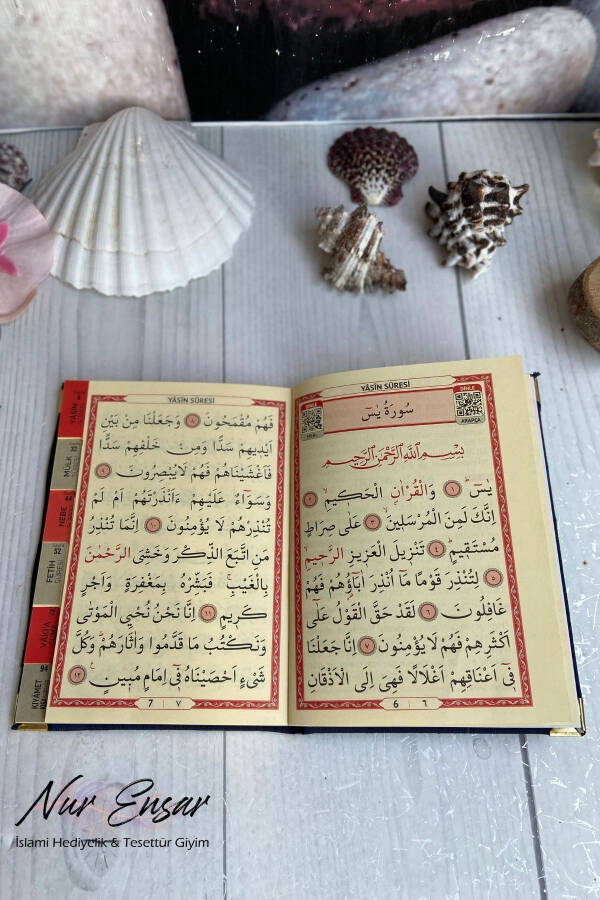 YÂSÎN SÛRESİ
DİNLE
ARAPÇA
سُورَةُ يٰسٓ
بِسْمِ اللّٰهِ الرَّحْمٰنِ الرَّحِيمِ
يٰسٓ ﴿١﴾ وَالْقُرْاٰنِ الْحَكِيمِ ﴿٢﴾
اِنَّكَ لَمِنَ الْمُرْسَلِينَ ﴿٣﴾ عَلٰى صِرَاطٍ
مُسْتَقِيمٍ ﴿٤﴾ تَنْزِيلَ الْعَزِيزِ الرَّحِيمِ
﴿٥﴾ لِتُنْذِرَ قَوْمًا مَٓا اُنْذِرَ اٰبَٓاؤُهُمْ فَهُمْ
غَافِلُونَ ﴿٦﴾ لَقَدْ حَقَّ الْقَوْلُ عَلٰٓى
اَكْثَرِهِمْ فَهُمْ لَا يُؤْمِنُونَ ﴿٧﴾ اِنَّا جَعَلْنَا
فِٓي اَعْنَاقِهِمْ اَغْلَالًا فَهِيَ اِلَى الْاَذْقَانِ
6 ٦
YÂSÎN SÛRESİ
فَهُمْ مُقْمَحُونَ ﴿٨﴾ وَجَعَلْنَا مِنْ بَيْنِ
اَيْدِيهِمْ سَدًّا وَمِنْ خَلْفِهِمْ سَدًّا
فَاَغْشَيْنَاهُمْ فَهُمْ لَا يُبْصِرُونَ ﴿٩﴾
وَسَوَٓاءٌ عَلَيْهِمْ ءَاَنْذَرْتَهُمْ اَمْ لَمْ
تُنْذِرْهُمْ لَا يُؤْمِنُونَ ﴿١٠﴾ اِنَّمَا تُنْذِرُ
مَنِ اتَّبَعَ الذِّكْرَ وَخَشِيَ الرَّحْمٰنَ
بِالْغَيْبِۚ فَبَشِّرْهُ بِمَغْفِرَةٍ وَاَجْرٍ
كَرِيمٍ ﴿١١﴾ اِنَّا نَحْنُ نُحْيِ الْمَوْتٰى
وَنَكْتُبُ مَا قَدَّمُوا وَاٰثَارَهُمْۜ وَكُلَّ
شَيْءٍ اَحْصَيْنَاهُ فِٓي اِمَامٍ مُبِينٍ۟ ﴿١٢﴾
7 ٧
YÂSÎN
MÜLK
NEBE
FETİH
52
VÂKIA
KIYÂMET
94
Nur Ensar
İslami Hediyelik & Tesettür Giyim